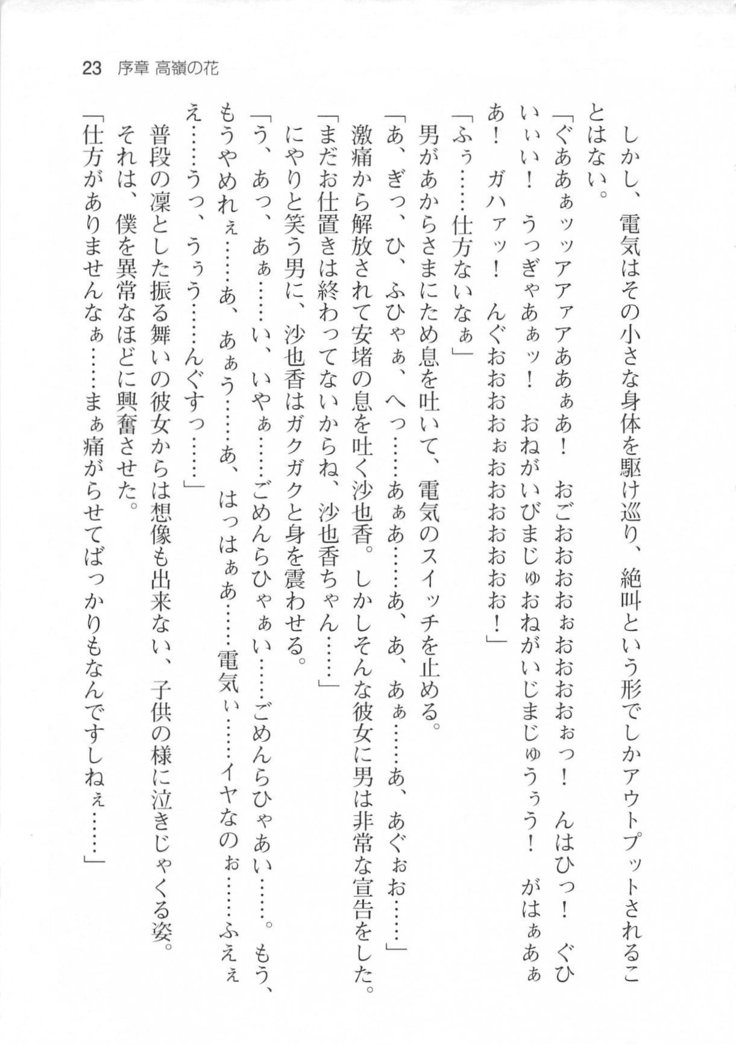 23 序章 高嶺の花
しかし、電気はその小さな身体を駆け巡り、絶叫という形でしかアウトプットされるこ
とはない。
「ぐああぁッッアアァアああぁあ！　おごおおおおぉおおおおぉっ！　んはひっ！　ぐひ
いぃい！　うっぎゃあぁッ！　おねがいびまじゅおねがいじまじゅうぅう！　がはぁあぁ
あ！　ガハァッ！　んぐおおおおぉおおおおおおお！」
「ふぅ……仕方ないなぁ」
男があからさまにため息を吐いて、電気のスイッチを止める。
「あ、ぎっ、ひ、ふひゃぁ、へっ……あぁあ……あ、あ、あぁ……あ、あぐぉお……」
激痛から解放されて安堵の息を吐く沙也香。しかしそんな彼女に男は非常な宣告をした。
「まだお仕置きは終わってないからね、沙也香ちゃん……」
にやりと笑う男に、沙也香はガクガクと身を震わせる。
「う、あっ、あぁ……い、いやぁ……ごめんらひゃぁい……ごめんらひゃあい……。もう、
もうやめれぇ……あ、あぁう……あ、はっはぁあ……電気ぃ……イヤなのぉ……ふえぇ
え……うっ、うぅう……んぐすっ……」
普段の凜とした振る舞いの彼女からは想像も出来ない、子供の様に泣きじゃくる姿。
それは、僕を異常なほどに興奮させた。
「仕方がありませんなぁ……まぁ痛がらせてばっかりもなんですしねぇ……」